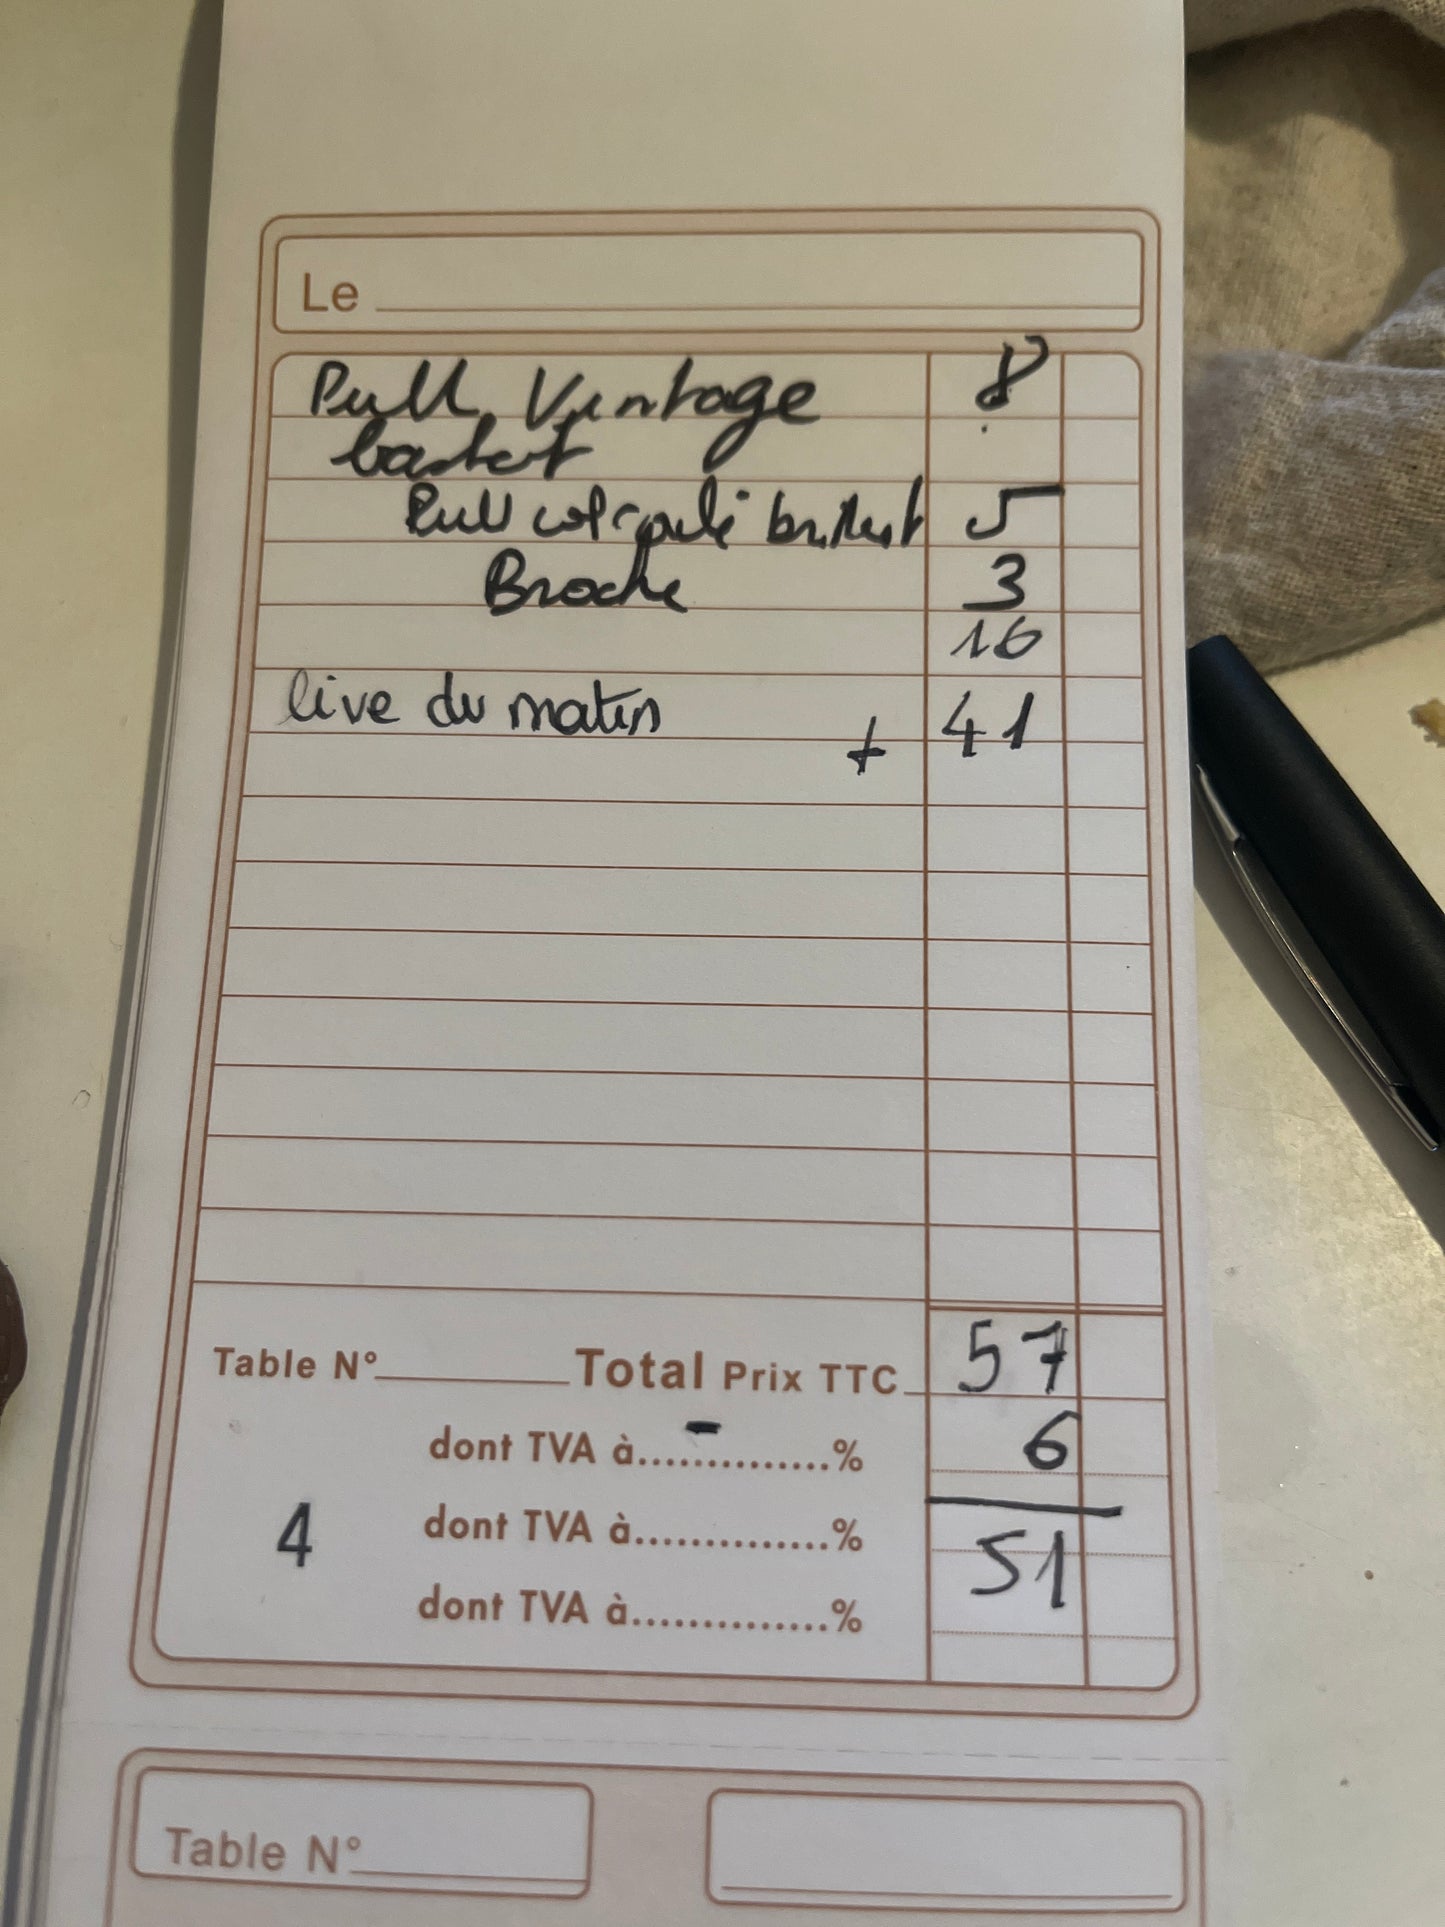 Le
Pull Vintage 8
basket
Pull col roulé brillant 5
Broche 3
16
live du matin + 41
Table N° Total Prix TTC 57
dont TVA à..............% - 6
4 dont TVA à..............% 51
dont TVA à..............%
Table N°